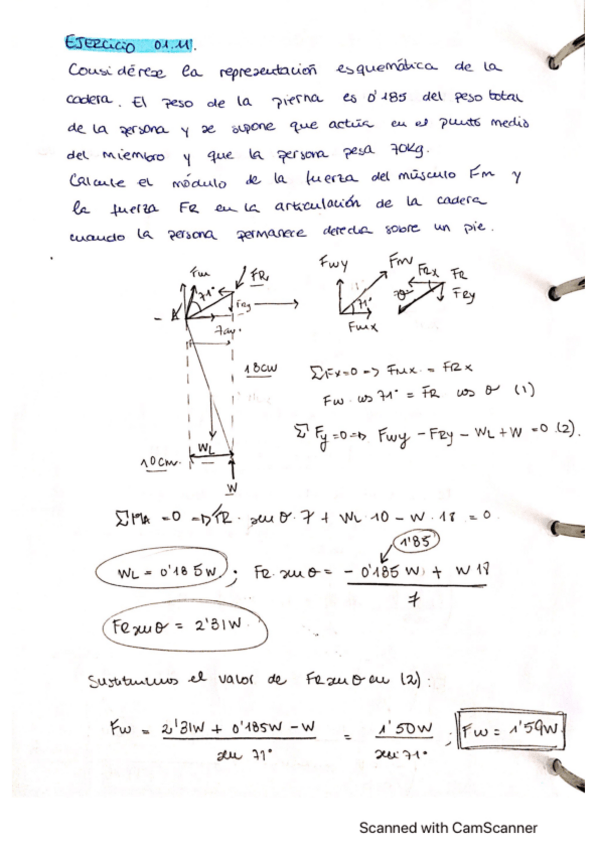 EJERCICIO 01.11.
Considérese la representación esquemática de la
cadera. El peso de la pierna es 0'185 del peso total
de la persona y se supone que actúa en el punto medio
del miembro y que la persona pesa 70kg.
Calcule el módulo de la fuerza del músculo Fm y
la fuerza FR en la articulación de la cadera
cuando la persona permanece derecha sobre un pie.
Fm FR
71° FRy
7cm.
Fwy Fm FRx FR
71° θ FRy
Fmx
18cm
ΣFx=0 => Fmx = FRx
Fm cos 71° = FR cos θ (1)
ΣFy=0 => Fwy - FRy - WL + W = 0 (2).
WL
10cm.
W
ΣMA = 0 => FR · sen θ · 7 + WL · 10 - W · 18 = 0
1'85
WL = 0'185W ; FR · sen θ = - 0'185 W + W 18
7
FR sen θ = 2'31W
Sustituimos el valor de FR sen θ en (2):
Fm = 2'31W + 0'185W - W = 1'50W ; Fm = 1'59W
sen 71° sen 71°
Scanned with CamScanner